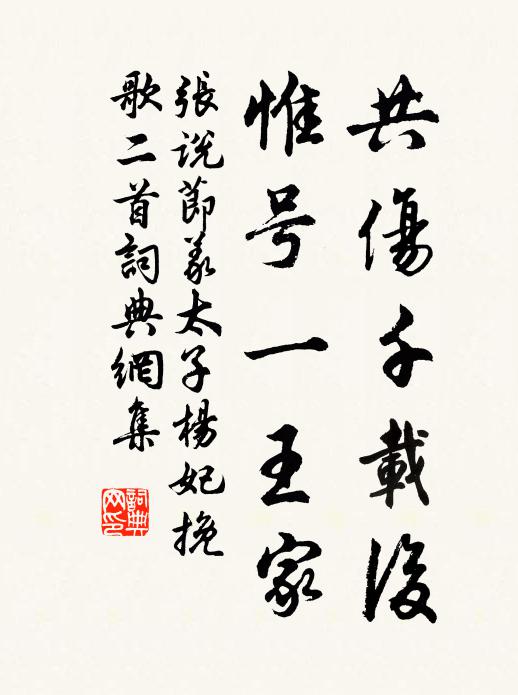 共傷千載後
惟号一王家
張説節義太子楊妃挽
歌二首詞典網集
詞典网印